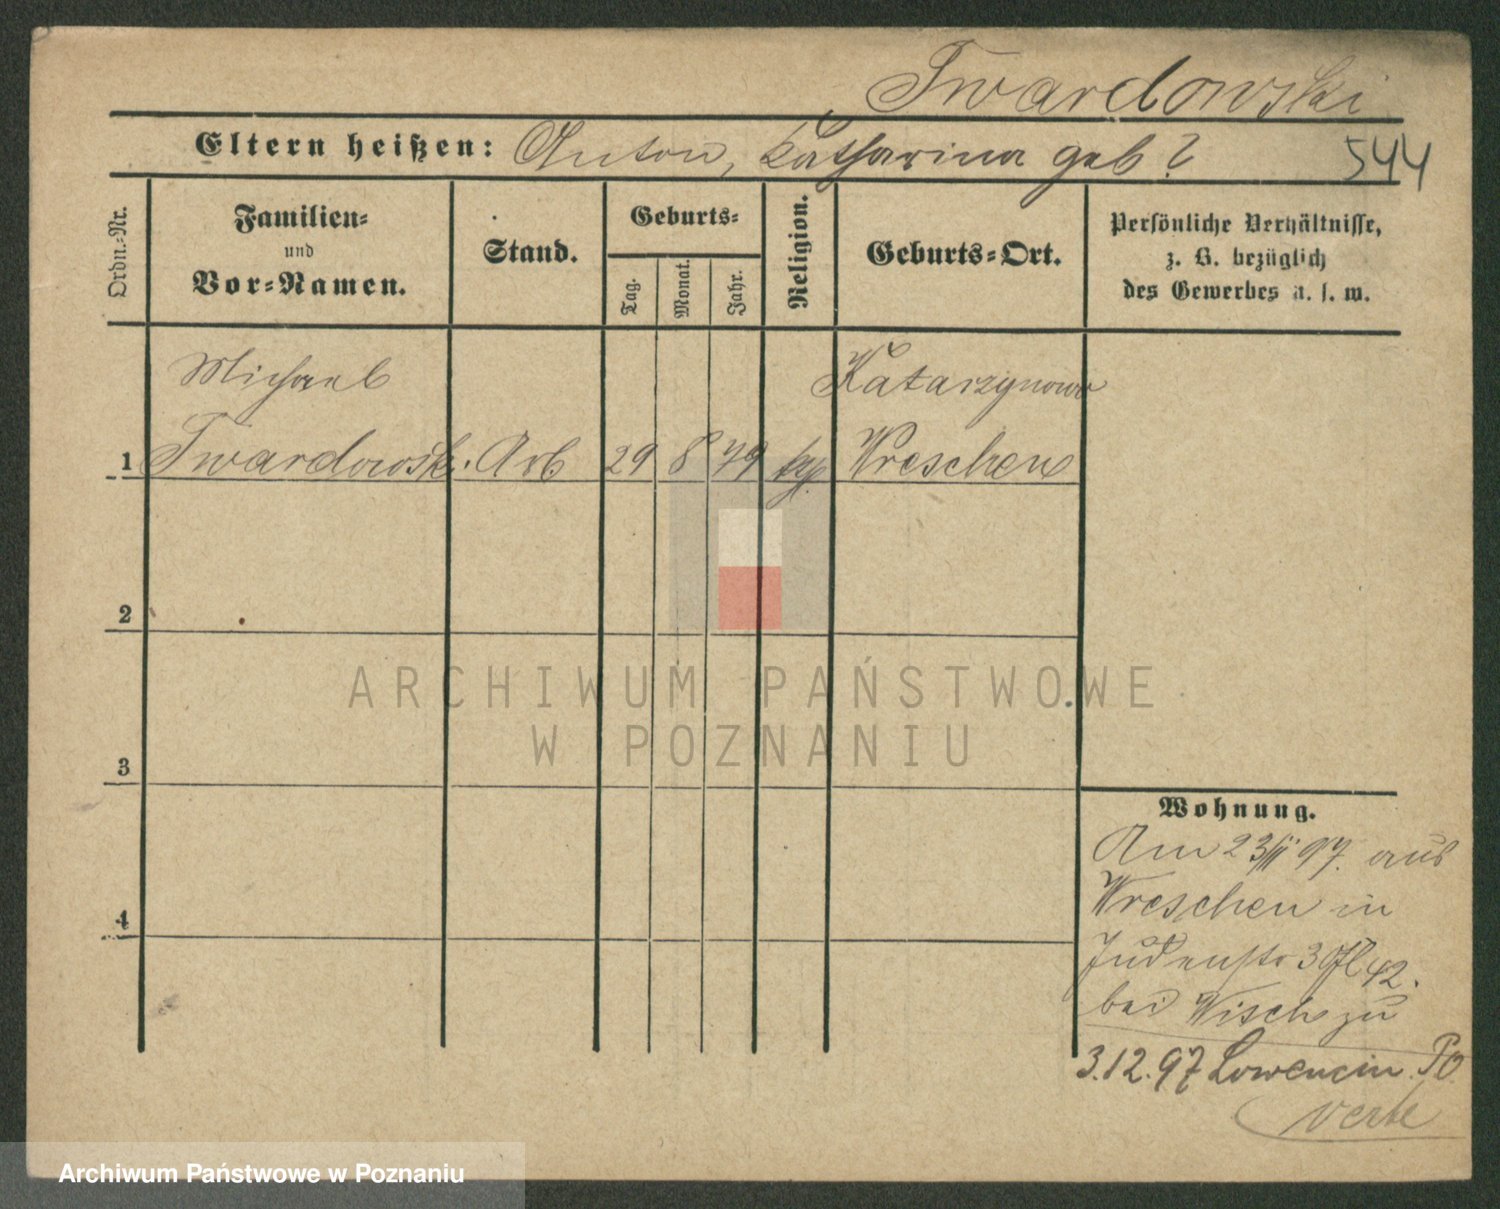 Twardowski
Eltern heißen: Anton, Katharina geb ?
544
Ordn.-Nr.
Familien-
und
Vor-Namen.
Stand.
Geburts-
Tag.
Monat.
Jahr.
Religion.
Geburts-Ort.
Persönliche Verhältnisse,
z. B. bezüglich
des Gewerbes u. s. w.
Michael
Katarzynowo
1 Twardowski. Arb 29 8 79 Wreschen
2
ARCHIWUM PAŃSTWOWE
W POZNANIU
3
4
Wohnung.
Am 23/11 97. aus
Wreschen in
Judenstr 3
42.
bei Wisch zu
3.12.97 Lowencin. Po
verte
Archiwum Państwowe w Poznaniu